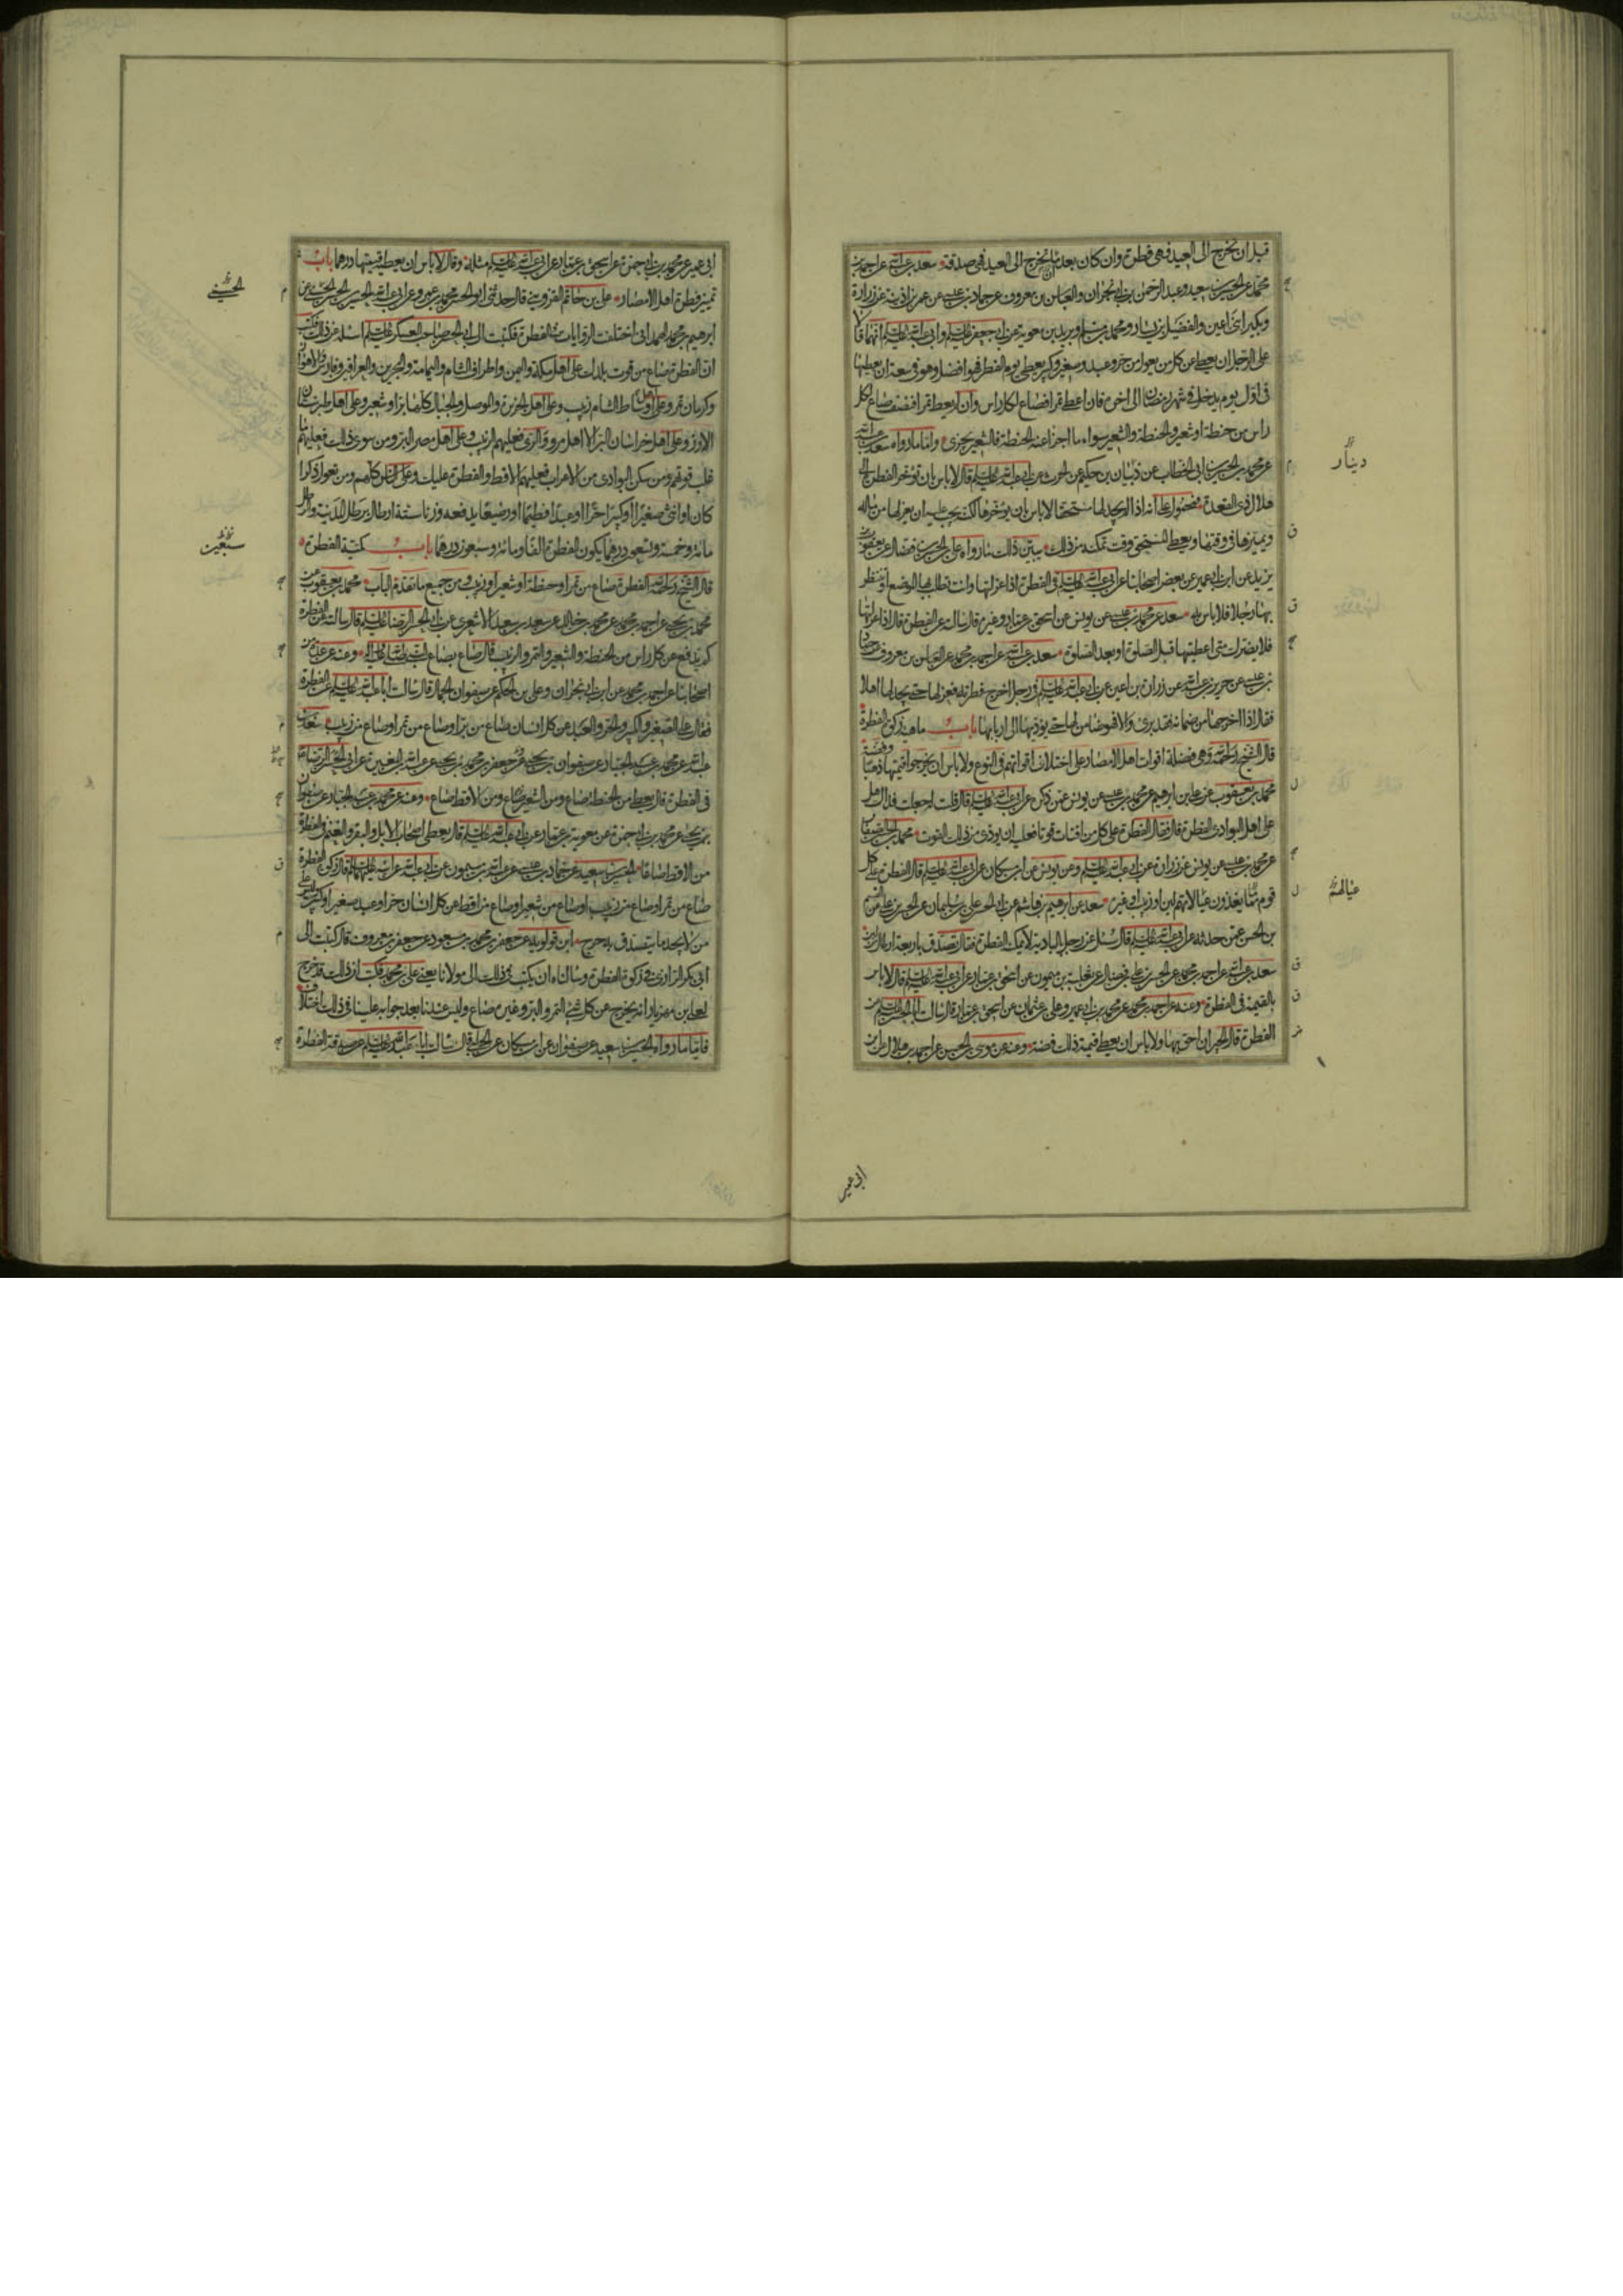 قبل ان تخرج الى العيد فهى فطرة وان كان بعد ما تخرج الى العيد فهى صدقة سعد بن عبد الله عن احمد بن
محمد عن الحسين بن سعيد وعبد الرحمن بن ابى نجران والعباس بن معروف عن حماد بن عيسى عن عمر بن اذينة عن زرارة
وبكير ابنى اعين والفضيل بن يسار ومحمد بن مسلم وبريد بن معوية عن ابى جعفر عليه السلم وابى عبد الله عليه السلم انهما قالا
على الرجل ان يعطى عن كل من يعول من حر وعبد وصغير وكبير يعطى يوم الفطر فهو افضل وهو فى سعة ان يعطيها
فى اول يوم يدخل فى شهر رمضان الى اخره فان اعطى تمرا فصاع لكل راس وان لم يعط تمرا فنصف صاع لكل
راس من حنطة او شعير والحنطة والشعير سواء ما اجزا عنه الحنطة فالشعير يجزى واما ما رواه سعد بن عبد الله
عن محمد بن الحسين بن ابى الخطاب عن ذبيان بن حكيم عن الحرث عن ابى عبد الله عليه السلم قال لا باس بان تؤخر الفطرة الى
هلال ذى القعدة فمحمول على انه اذا لم يجد لها مستحقا لا باس بان يؤخرها لكنه يجب عليه ان يعزلها من ماله
ويميزها فى وقتها ويعطى المستحق وقت تمكنه من ذلك يبين ذلك ما رواه على بن الحسن بن فضال عن يعقوب بن
يزيد عن ابن ابى عمير عن بعض اصحابنا عن ابى عبد الله عليه السلم فى الفطرة اذا عزلتها وانت تطلب بها الموضع او تنتظر
بها رجلا فلا باس به سعد عن محمد بن عيسى عن يونس عن اسحق بن عمار وغيره قال سالته عن الفطرة قال اذا عزلتها
فلا يضرك متى اعطيتها قبل الصلوة او بعد الصلوة سعد بن عبد الله عن احمد بن محمد عن العباس بن معروف عن حماد
بن عيسى عن حريز بن عبد الله عن زرارة بن اعين عن ابى عبد الله عليه السلم فى رجل اخرج فطرته فعزلها حتى يجد لها اهلا
فقال اذا اخرجها من ضمانه فقد برئ والا فهو ضامن لها حتى يؤديها الى اربابها باب ماهية زكوة الفطرة
قال الشيخ رحمه الله وهى فضلة اقوات اهل الامصار على اختلاف اقواتهم فى النوع ولا باس ان يخرجوا قيمتها ذهبا وفضة
محمد بن يعقوب عن على بن ابراهيم عن محمد بن عيسى عن يونس عمن ذكره عن ابى عبد الله عليه السلم قال قلت له جعلت فداك هل
على اهل البوادى الفطرة قال فقال الفطرة على كل من اقتات قوتا فعليه ان يؤدى من ذلك القوت محمد بن الحسن الصفار
عن محمد بن عيسى عن يونس عن زرارة عن ابى عبد الله عليه السلم وعن يونس عن ابن مسكان عن ابى عبد الله عليه السلم قال الفطرة على كل
قوم مما يغذون عيالاتهم لبن او زبيب او غيره سعد عن ابراهيم بن هاشم عن ابى الحسن على بن سليمان عن الحسن بن على عن القسم
بن الحسن عمن حدثه عن ابى عبد الله عليه السلم قال سئل عن رجل بالبادية لا يمكنه الفطرة فقال تصدق باربعة ارطال من لبن
سعد بن عبد الله عن احمد بن محمد عن الحسن بن على بن فضال عن ثعلبة بن ميمون عن اسحق بن عمار عن ابى عبد الله عليه السلم قال لا باس
بالقيمة فى الفطرة وعنه عن احمد بن محمد عن محمد بن ابى عمير وعلى بن عثمان عن اسحق بن عمار قال سالت ابا الحسن عليه السلم عن
الفطرة قال الجيران احق بها ولا باس ان يعطى قيمة ذلك فضة وعنه عن موسى بن الحسن عن احمد بن هلال عن ابن
دينار
عيالهم
ابى عمير
ابى عمير عن محمد بن ابى حمزة عن اسحق بن عمار عن ابى عبد الله عليه السلم مثله وقال لا باس ان يعطيه قيمتها درهما باب
تمييز فطرة اهل الامصار على بن حاتم القزوينى قال حدثنى ابو الحسن محمد بن عمرو عن ابى عبد الله الحسين بن الحسن الحسينى عن
ابرهيم بن محمد الهمدانى اختلفت الروايات فى الفطرة فكتبت الى ابى الحسن صاحب العسكر عليه السلم اساله عن ذلك فكتب
ان الفطرة صاع من قوت بلدك على اهل مكة واليمن والطرائف والشام واليمامة والبحرين والعراقين وفارس والاهواز
وكرمان تمر وعلى اوساط الشام زبيب وعلى اهل الجزيرة والموصل والجبال كلها بر او شعير وعلى اهل طبرستان
الارز وعلى اهل خراسان البر الا اهل مرو والرى فعليهم الزبيب وعلى اهل مصر البر ومن سوى ذلك فعليهم ما
غلب قوتهم ومن سكن البوادى من الاعراب فعليهم الاقط والفطرة عليك وعلى الناس كلهم ومن تعول ذكرا
كان او انثى صغيرا او كبيرا حرا او عبدا فطيما او رضيعا يدفعه وزنا ستة ارطال برطل المدينة والرطل
مائة وخمسة وتسعون درهما يكون الفطرة الفا ومائة وسبعون درهما باب كمية الفطرة
قال الشيخ رحمه الله الفطرة صاع من تمر او حنطة او شعير او زبيب ومن جميع ما تقدم الباب محمد بن يعقوب عن
محمد بن يحيى عن احمد بن محمد عن محمد بن خالد عن سعد بن سعد الاشعرى عن ابى الحسن الرضا عليه السلم قال سالته عن الفطرة
كم يدفع عن كل راس من الحنطة والشعير والتمر والزبيب قال صاع بصاع النبى صلى الله عليه واله وعنه عن عدة من
اصحابنا عن احمد بن محمد عن ابن ابى نجران وعلى بن الحكم عن صفوان الجمال قال سالت ابا عبد الله عليه السلم عن الفطرة
فقال على الصغير والكبير والحر والعبد عن كل انسان صاع من بر او صاع من تمر او صاع من زبيب سعد بن
عبد الله عن محمد بن عبد الجبار عن صفوان بن يحيى عن جعفر بن محمد بن يحيى عن عبد الله بن المغيرة عن ابى الحسن الرضا
فى الفطرة قال يعطى من الحنطة صاع ومن الشعير صاع ومن الاقط صاع وعنه عن محمد بن عبد الجبار عن صفوان
بن يحيى عن محمد بن ابى حمزة عن معوية بن عمار عن ابى عبد الله عليه السلم قال يعطى اصحاب الابل والبقر والغنم فى الفطرة
من الاقط صاعا الحسين بن سعيد عن حماد بن عيسى عن عبد الله بن ميمون عن ابى عبد الله عن ابيه عليهما السلم قال زكوة الفطرة
صاع من تمر او صاع من زبيب او صاع من شعير او صاع من اقط عن كل انسان حر او عبد صغير او كبير وليس على
من لا يجد ما يتصدق به حرج ابن قولويه عن جعفر بن محمد بن مسعود عن جعفر بن معروف قال كتبت الى
ابى بكر الرازى فى زكوة الفطرة وسالناه ان يكتب فى ذلك الى مولانا يعنى على بن محمد فكتب ان ذلك قد خرج
لعلى بن مهزيار انه يخرج من كل شئ التمر والبر وغيره صاع وليس عندنا بعد جوابه علينا فى ذلك اختلاف
فاما ما رواه الحسين بن سعيد عن صفوان عن ابن مسكان عن الحلبى قال سالت ابا عبد الله عليه السلم عن صدقة الفطرة
الحسينى
سبعين